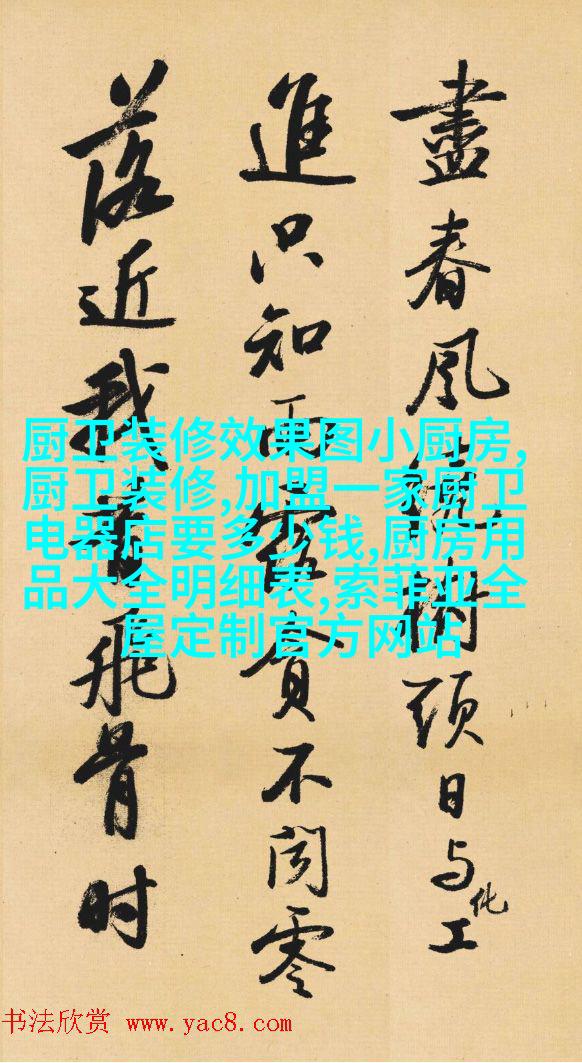 盡春風繞樹頭日与化工
進只知雨露貪不闻零
落近我昔飛骨时
厨卫装修效果图小厨房,
厨卫装修,加盟一家厨卫
电器店要多少钱,厨房用
品大全明细表,索菲亚全
屋定制官方网站
书法欣赏 www.yac8.com